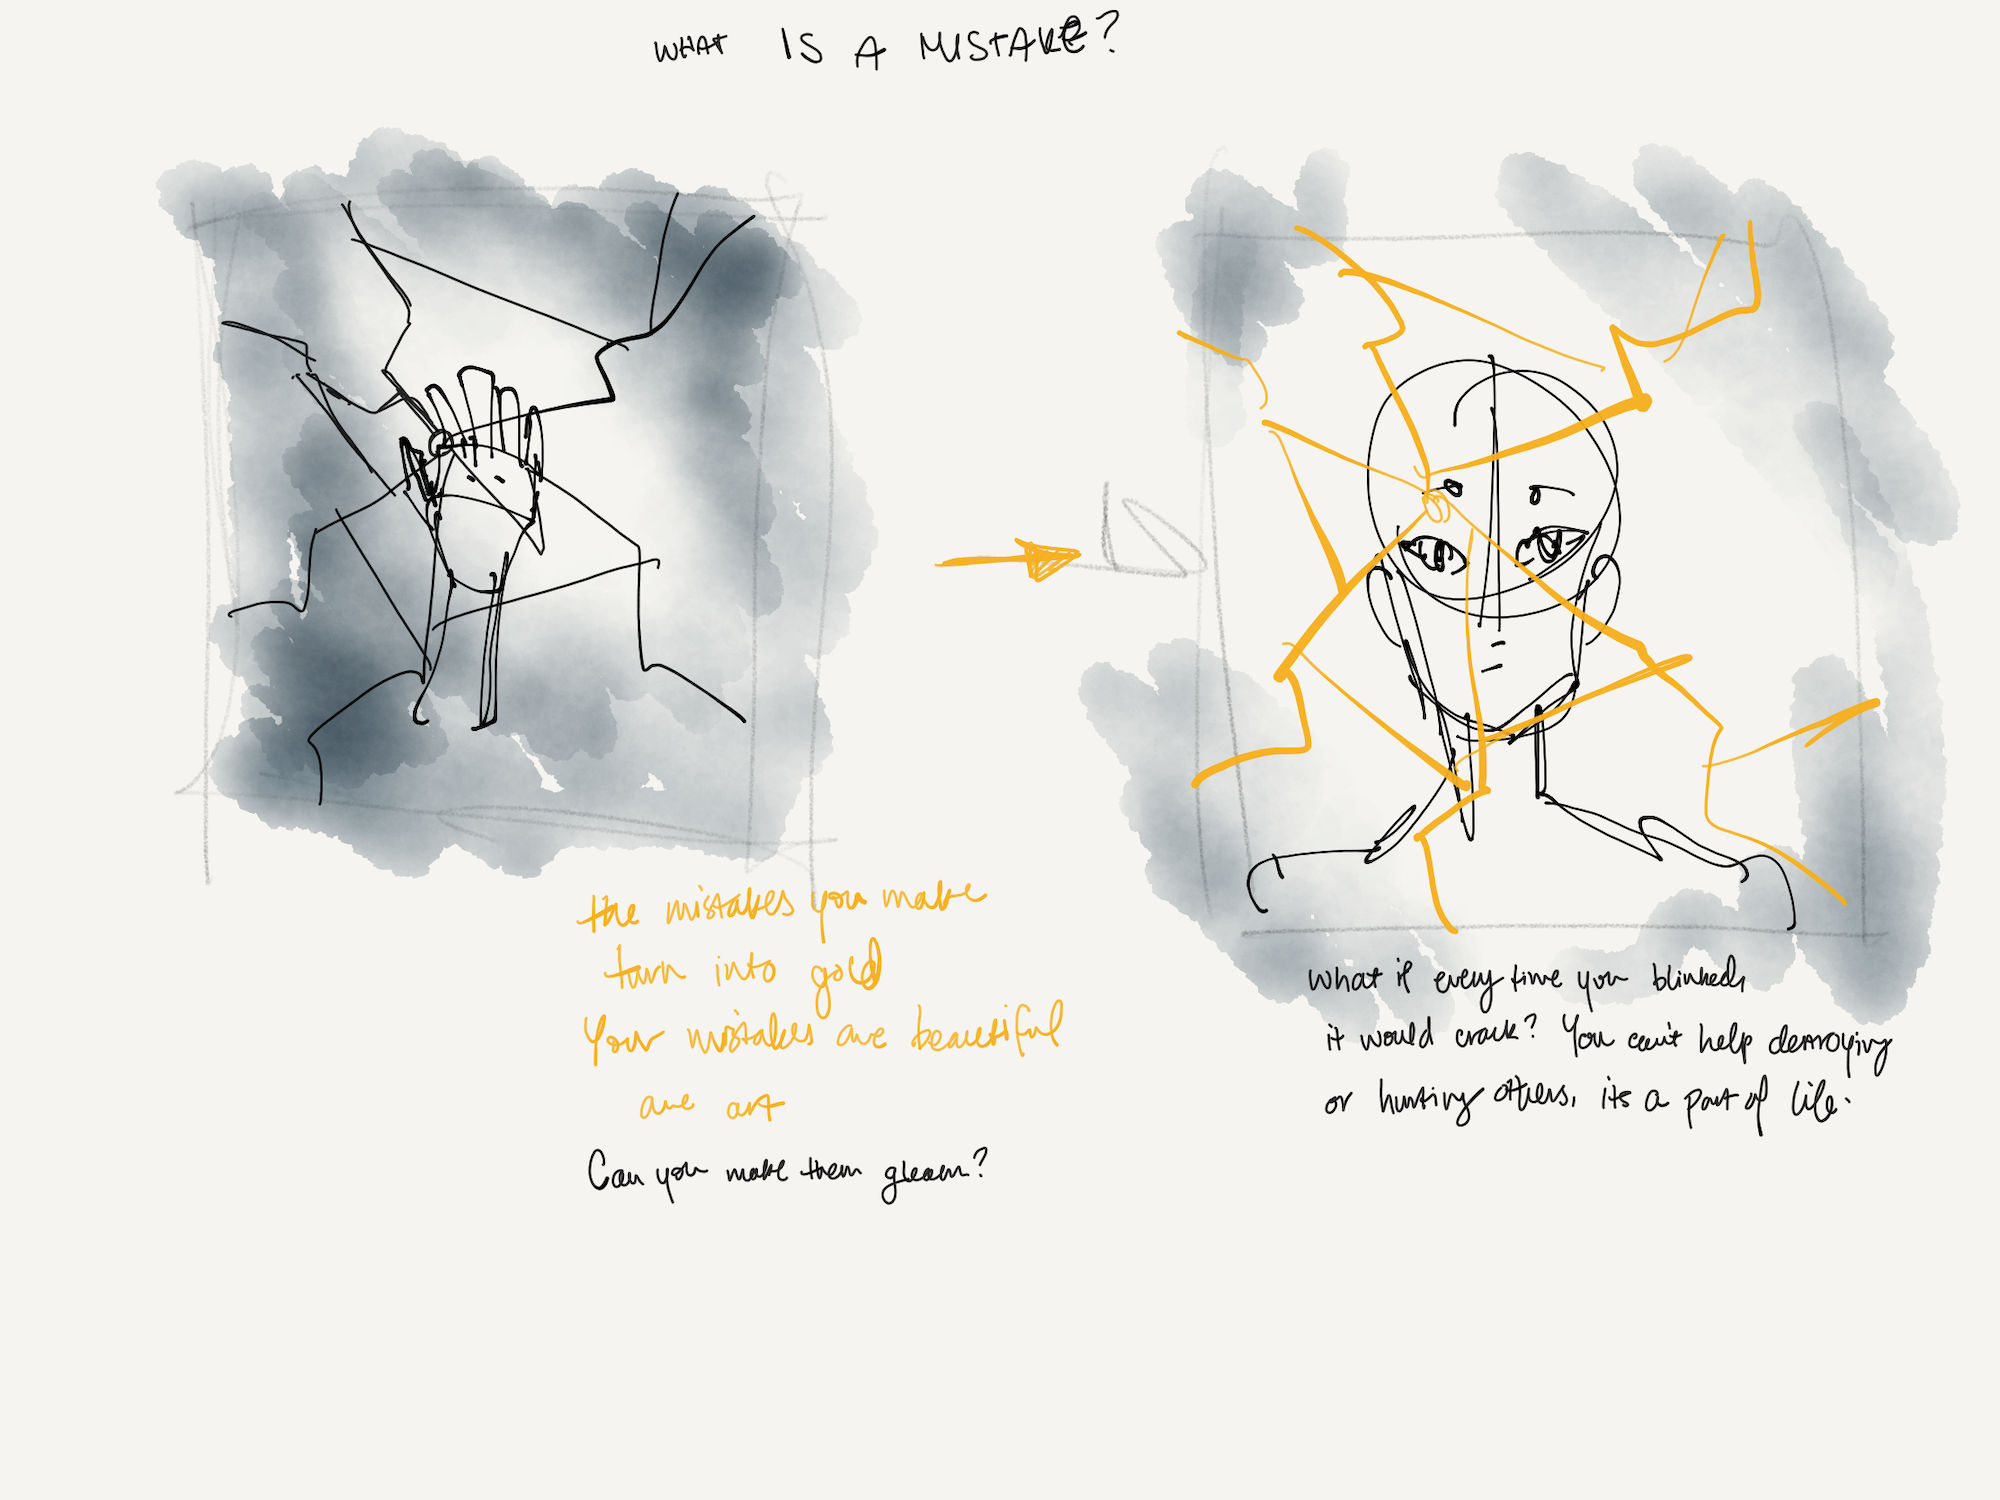 WHAT IS A MISTAKE?
the mistakes you make
turn into gold
Your mistakes are beautiful
are art
Can you make them gleam?
What if every time you blinked
it would crack? You can't help destroying
or hurting others, its a part of life.